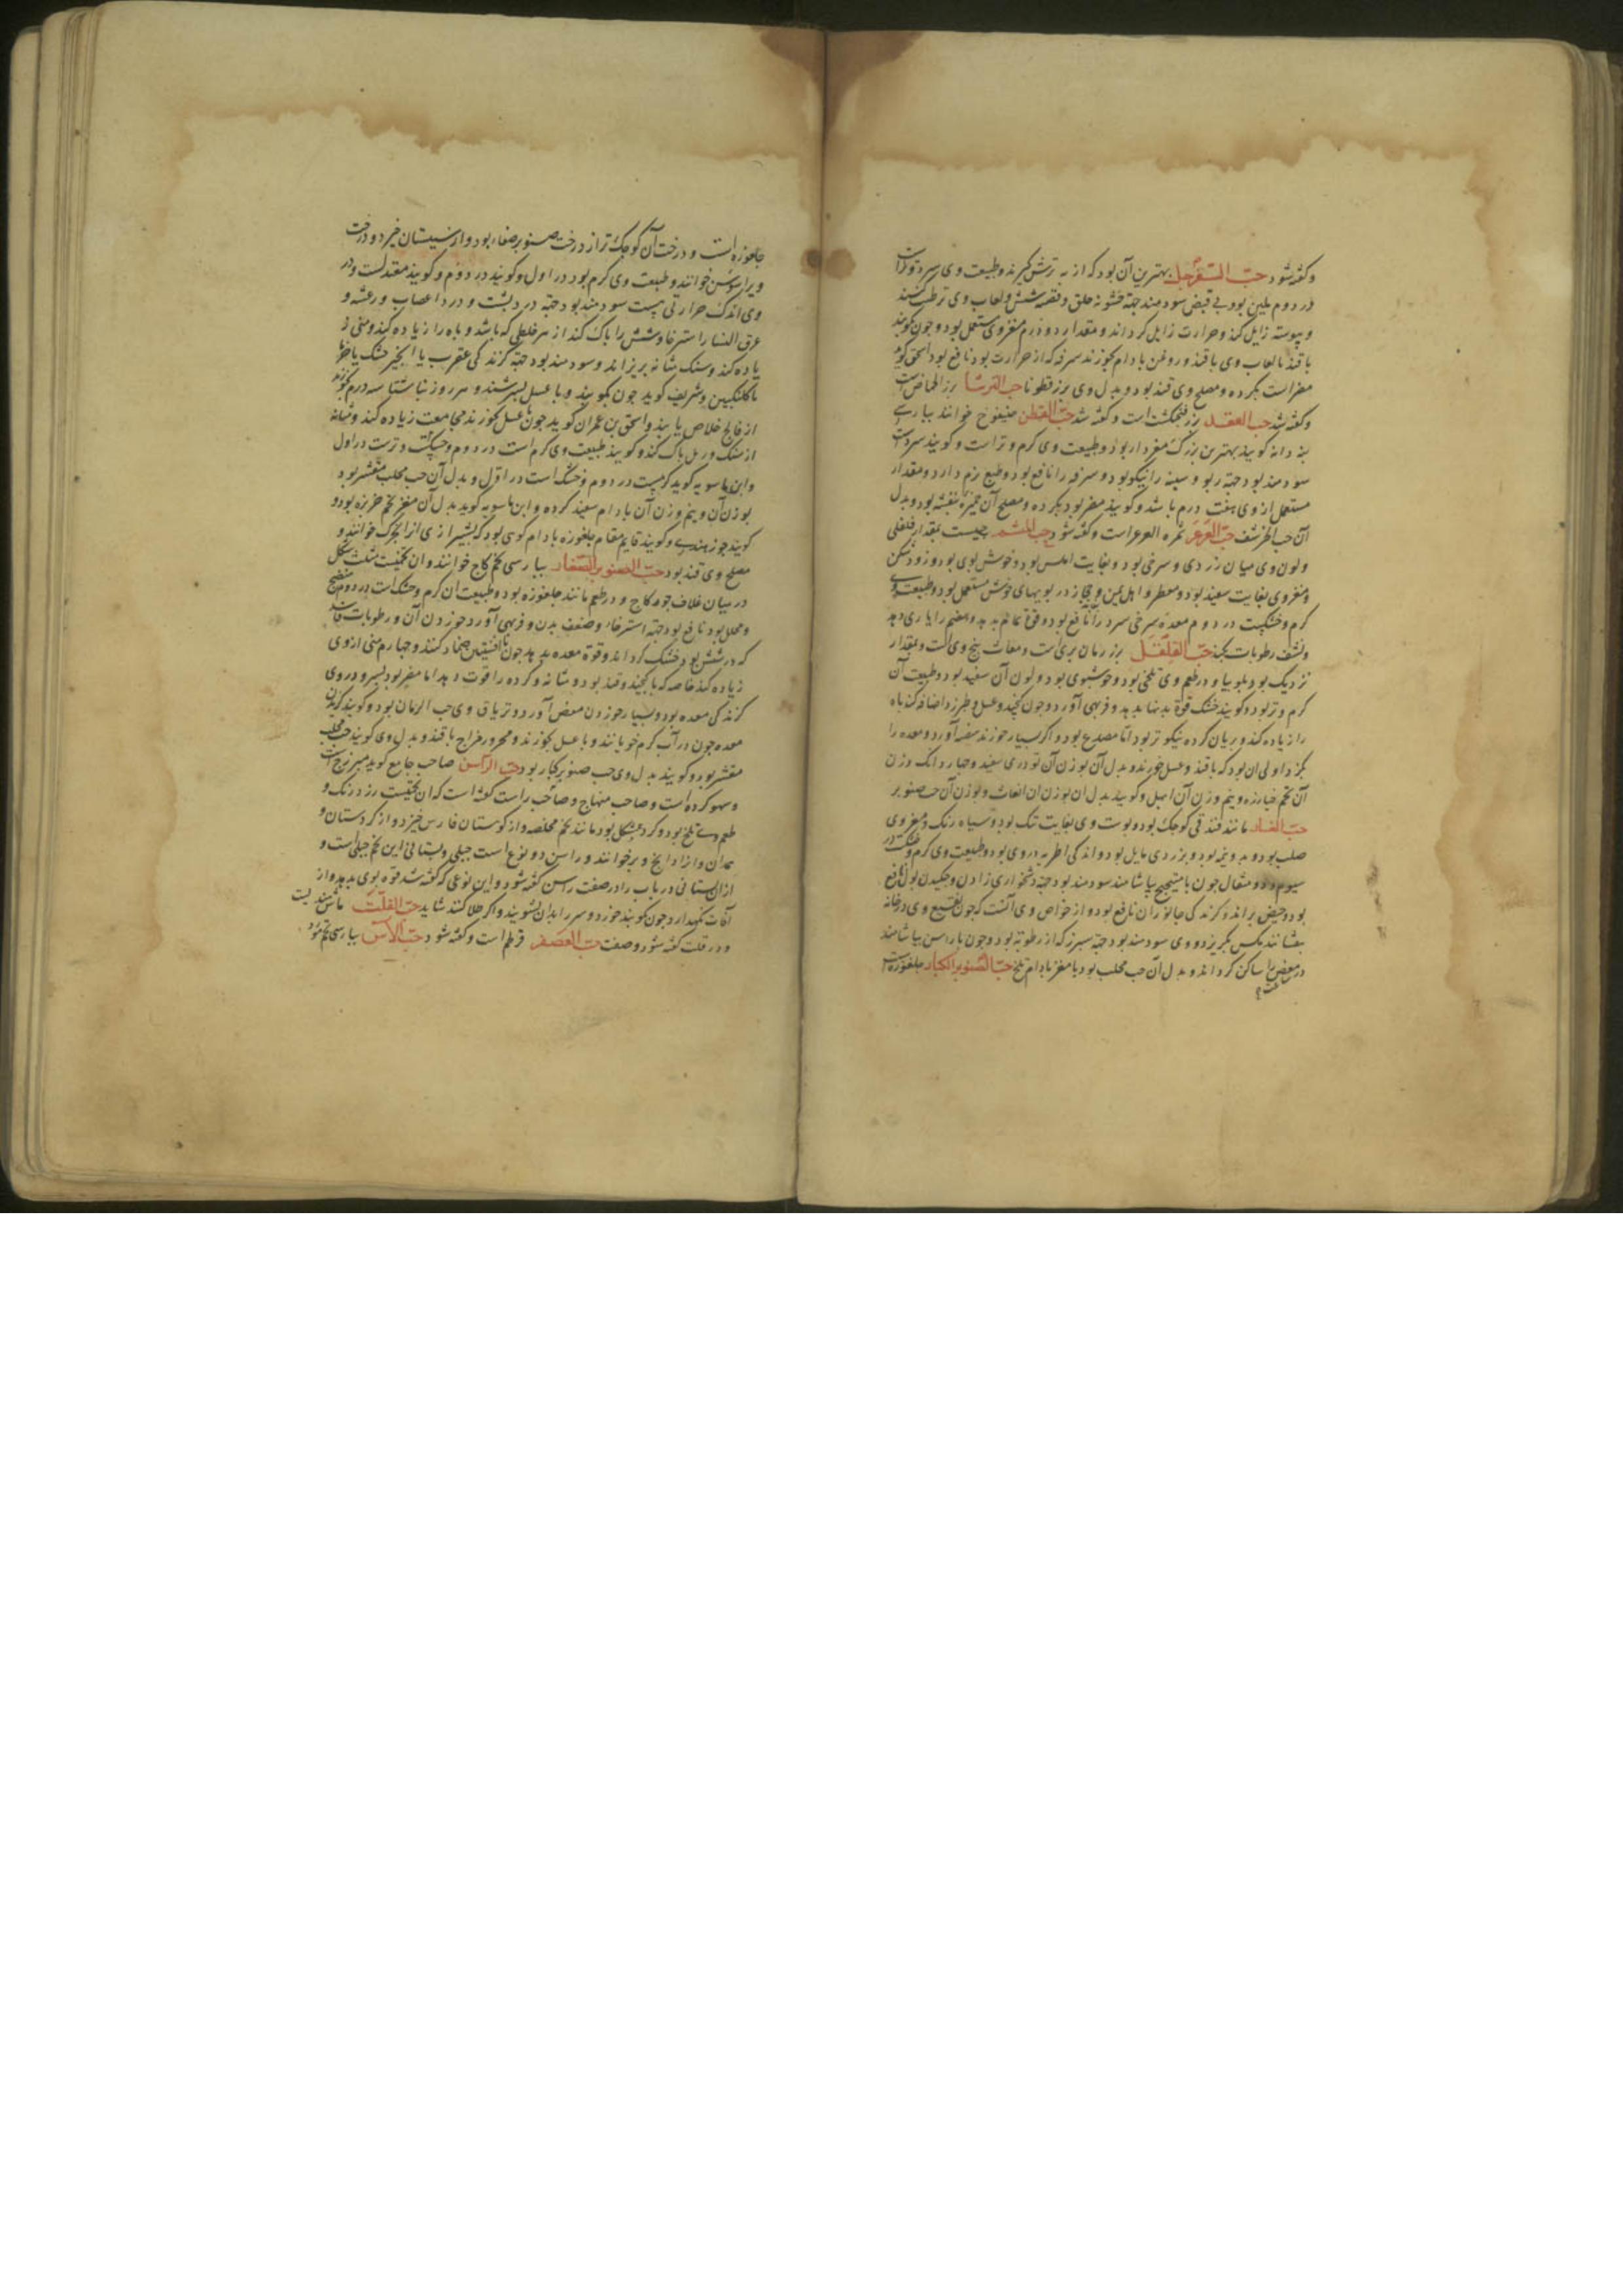 وکفته شود حب السفرجل بهترین آن بود که از به ترش کیرند و طبیعت وی سرد و تر است
در دوم ملین بود بی قبض سودمند جهة خشونه حلق و قصبه شش و لعاب وی ترطیب کند
و یبوسته زایل کند و حرارت زایل کرداند و مقدار دو درم مغز وی مستعمل بود و چون کویند
با قند یا لعاب وی با قند و روغن بادام بخورند سرفه که از حرارت بود نافع بود اسحق کوید
مضر است بکرده و مصلح وی قند بود و بدل وی بزر قطونا حب الفرشا بزر الحماض است
وکفته شد حب الفقد بزر فنجنکشت است وکفته شد حب القطن خیفوج خوانند بپارسی
پنبه دانه کویند بهترین بزرک مغزدار بود و طبیعت وی کرم و تر است و کویند سرد است
سودمند بود جهة ربو و سینه را نیکو بود و سرفه را نافع بود و طبع نرم دارد و مقدار
مستعمل از وی هفت درم باشد و کویند مضر بود بکرده و مصلح آن خمیره بنفشه بود و بدل
آن حب الخرشف حب العرعر ثمره العرعر است وکفته شود حب المنشم حبیست بمقدار فلفلی
ولون وی میان زردی و سرخی بود و بغایت املس بود و خوش بوی بود و زود شکن
و مغز وی بغایت سفید بود و معطر و اهل یمن و حجاز در بویهای خوش مستعمل بود و طبیعت وی
کرم و خشکست در دوم معده سرخی سرد را نافع بود و قوة تمام بدهد و هضم را یاری دهد
و نشف رطوبات بکند حب القلقل بزر رمان بری است و مغاث بیخ وی است و بمقدار
نزدیک بود بلوبیا و در طعم وی تلخی بود و خوشبوی بود و لون آن سفید بود و طبیعت آن
کرم و تر بود و کویند خشک قوة بدنها بدهد و فربهی آورد و چون کنجد و عسل و طبرزد اضافه کند باه
را زیاده کند و بریان کرده نیکوتر بود اما مصدع بود و اکر بسیار خورند هیضه آورد و معده را
بکزد اولی ان بود که با قند و عسل خورند و بدل آن بوزن آن تودری سفید و چهار دانک وزن
آن تخم خیارزه و نیم وزن آن ابهل و کویند بدل ان بوزن ان انغاث و بوزن آن حب صنوبر
حب الغار مانند فندقی کوچک بود و پوست وی بغایت تنک بود و سیاه رنک و مغز وی
صلب بود و بدو نیمه بود و بزردی مایل بود و اندکی اطریه در وی بود و طبیعت وی کرم و خشکست در
سیوم و دو مثقال چون با میبختج بیاشامند سودمند بود جهة دشخواری زادن و چکیدن بول نافع
بود و حیض براند و کزندکی جانوران نافع بود و از خواص وی آنست که چون نقیع وی در خانه
بفشانند مکس بکریزد و وی سودمند بود جهة سپرز که از رطوبه بود و چون با راسن بیاشامند
در مغص را ساکن کرداند و بدل آن حب محلب بود یا مغز بادام تلخ حب الصنوبر الکبار جلغوزه است
جلغوزه است و درخت آن کوچک تر از درخت صنوبر صغار بود و از سیستان خیزد و درخت
ویرا سوسن خوانند و طبیعت وی کرم بود در اول و کویند در دوم و کویند معتدلست و در
وی اندک حرارتی هست سودمند بود جهة درد پشت و درد اعصاب و رعشه و
عرق النسا و استرخا و شش را پاک کند از هر خلطی که باشد و باه را زیاده کند و منی ز
یاده کند و سنک مثانه بریزاند و سودمند بود جهة کزندکی عقرب با انجیر خشک یا خرما
با کلنکبین و شریف کوید چون بکویند و با عسل بسرشند و هر روز ناشتا سه درم بخورند
از فالج خلاص یابند و اسحق بن عمران کوید چون با عسل بخورند مجامعت زیاده کند و مثانه
از سنک و رمل پاک کند و کویند طبیعت وی کرم است در دوم و خشکست و ترست در اول
و ابن ماسویه کوید کرمست در دوم و خشک است در اول و بدل آن حب محلب مقشر بود
بوزن آن و نیم وزن آن بادام سفید کرده و ابن ماسویه کوید بدل آن مغز تخم خربزه بود و
کویند جوز هندی و کویند قایم مقام جلغوزه بادام کوهی بود که بشیرازی انرا بخرک خوانند و
مصلح وی قند بود حب الصنوبر الصغار بپارسی تخم کاج خوانند و ان تخمیست مثلث شکل
در میان غلاف جوزه کاج و در طعم مانند جلغوزه بود و طبیعت ان کرم و خشک است در دوم منضج
و محلل بود نافع بود جهة استرخا و ضعف بدن و فربهی آورد خوردن آن و رطوبات فاسد
که در شش بود خشک کرداند و قوة معده بدهد چون با افسنتین ضماد کنند و چهارم منی از وی
زیاده کند خاصه که با کنجد و قند بود و مثانه و کرده را قوت دهد اما مضر بود بسر و در وی
کزندکی معده بود و بسیار خوردن مغص آورد و تریاق وی حب الرمان بود و کویند کزیدن
معده چون در آب کرم خویانند و با عسل بخورند و محرور مزاج با قند و بدل وی کویند حب محلب
مقشر بود و کویند بدل وی حب صنوبر کبار بود حب الراسن صاحب جامع کوید میبزنج است
و سهو کرده است و صاحب منهاج و صاحب راست کفته است که ان تخمیست زرد رنک و
طعم وی تلخ بود و کرد شکل بود مانند تخم مخلصه و از کوهستان فارس خیزد و از کردستان و
همدان و انرا دانج و بر خوانند و راسن دو نوع است جبلی و بستانی این تخم جبلی است و
ازان بستانی در باب را در صفت راسن کفته شود و این نوعی که کفته شد قوة بوی بدهد و از
آفات نکهدارد چون کویند خورد و سر را بدان بشویند و اکر طلا کنند شاید حب القلت ماش هندیست
و در قلت کفته شود و صفت حب العصفر قرطم است وکفته شود حب الآس بپارسی تخم مورد